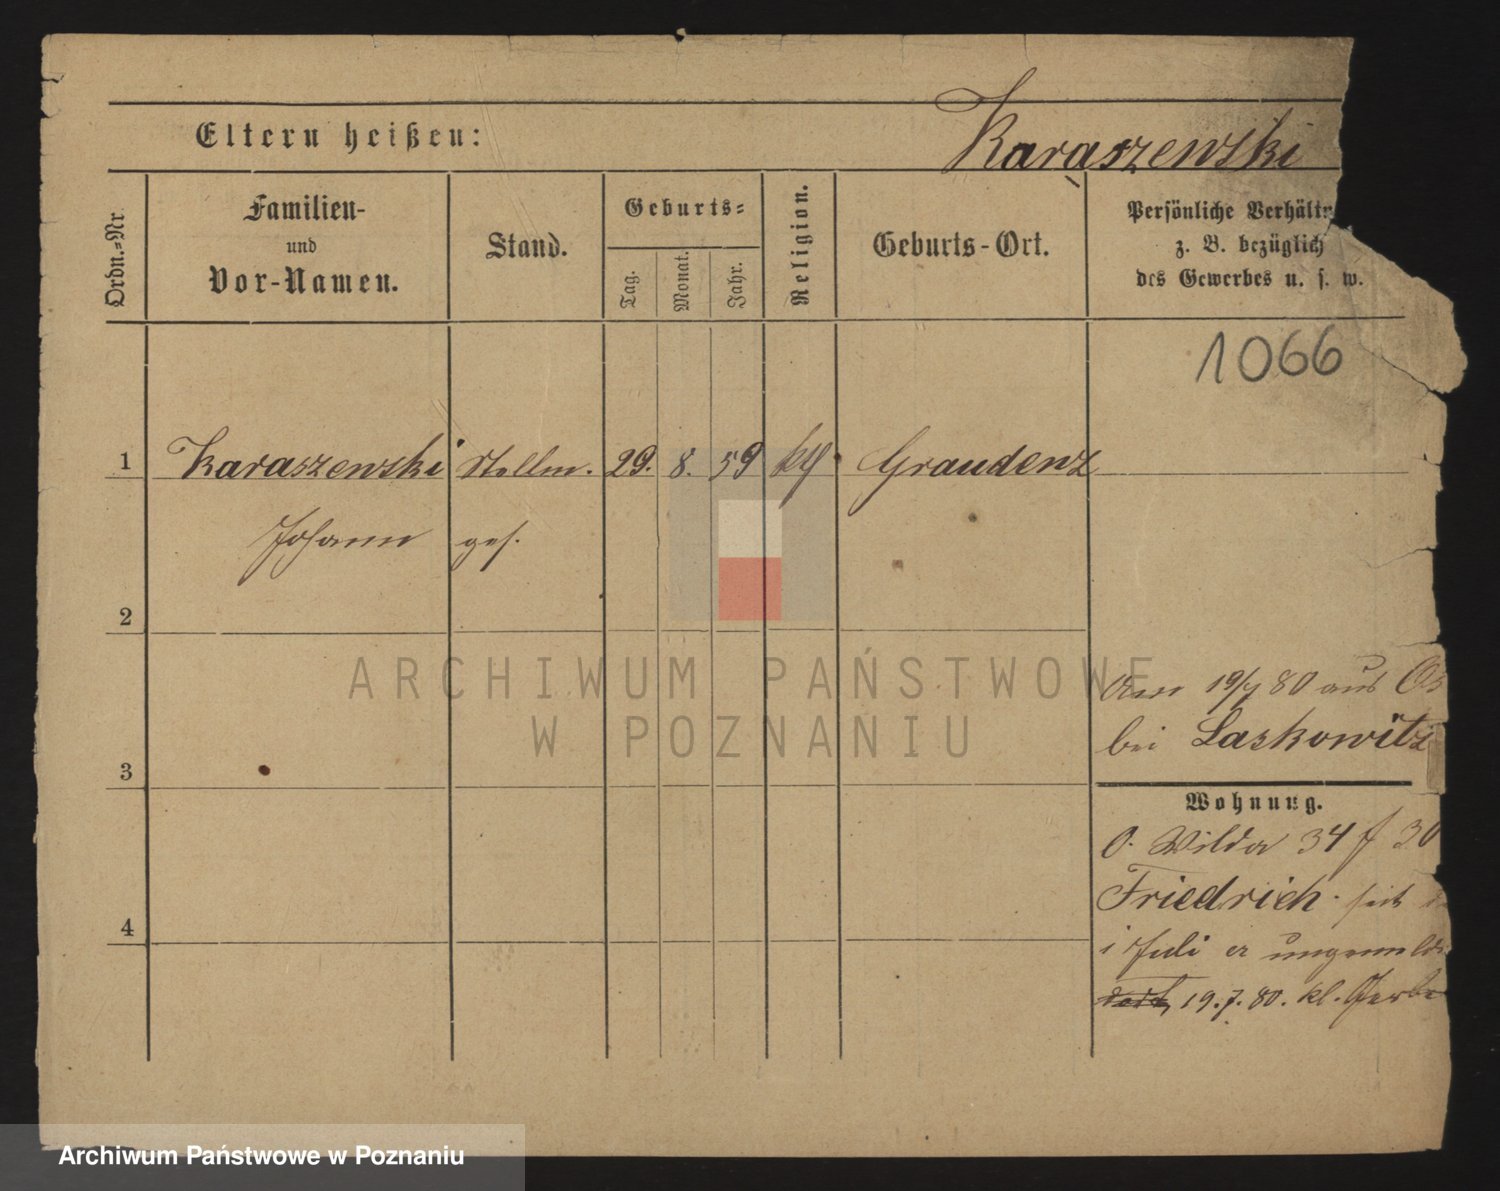 Eltern heißen:
Karaszewski
Ordn.=Nr.
Familien-
und
Vor-Namen.
Stand.
Geburts=
Tag.
Monat.
Jahr.
Religion.
Geburts-Ort.
Persönliche Verhält
z. B. bezüglich
des Gewerbes u. s. w.
1066
1 Karaszewski Stellm. 29. 8. 59 kth Graudenz
Johann ges.
2
3
4
am 19/7 80 aus Os
bei Laskowitz
Wohnung.
O. Wilda 34 f 30
Friedrich. seit
i Juli er ungemeld
19.7.80. kl. Gerbe
ARCHIWUM PAŃSTWOWE
W POZNANIU
Archiwum Państwowe w Poznaniu